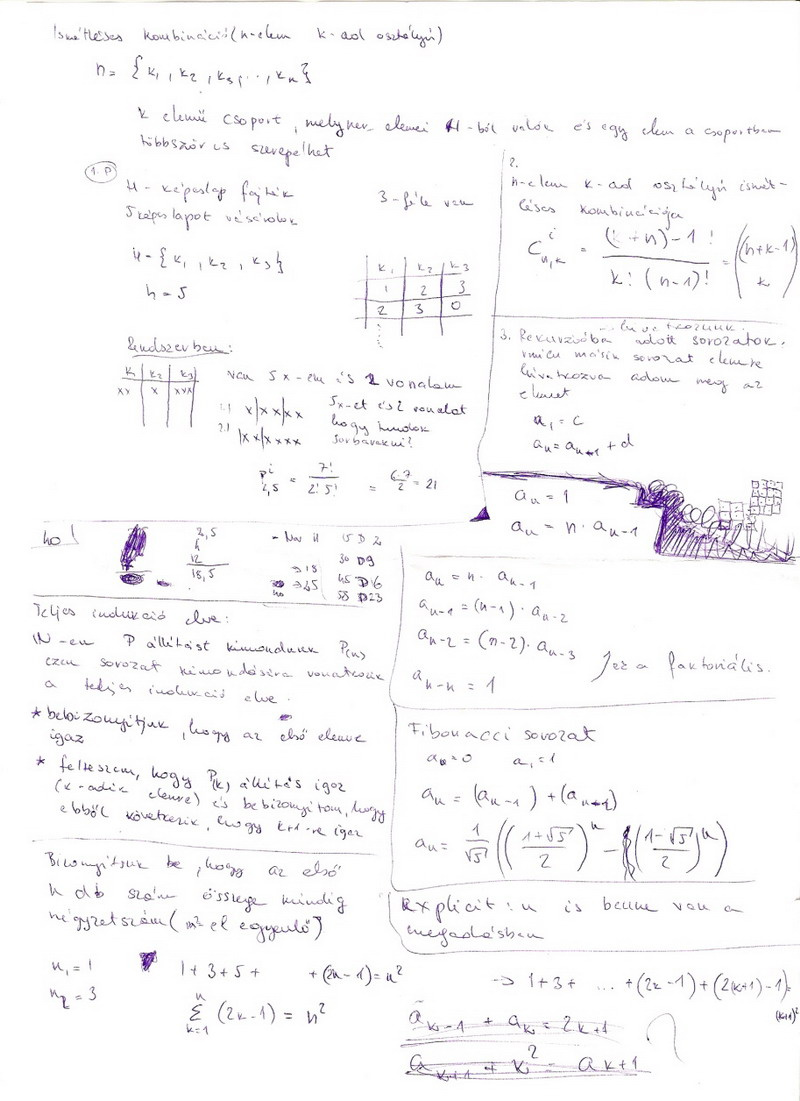 Ismétléses kombináció (n-elem k-ad osztályú)
n = {k₁, k₂, k₃, .., kₙ}
k elemű csoport, melynek elemei H-ból valók és egy elem a csoportban
többször is szerepelhet
1. P
H - képeslap fajták
5 képeslapot vásárolok
3-féle van
H = {k₁, k₂, k₃}
n = 5
k₁ k₂ k₃
1 2 3
2 3 0
Rendszerben:
k₁ k₂ k₃
xx x xxx
van 5 x-em és 2 vonalam
1.) x|xx|xx
2.) |xx|xxxx
5x-et és 2 vonalat
hogy tudok
sorbarakni?
pⁱ₂,₅ = 7! / 2! 5! = 6·7 / 2 = 21
2.
n-elem k-ad osztályú ismét-
léses kombinációja
Cⁱₙ,ₖ = (k+n)-1! / k! (n-1)! = (n+k-1 / k)
3. Rekurzióba adott sorozatok.
másik sorozat elemere
hivatkozva adom meg az
elemet
a₁ = c
aₙ = aₙ₊₁ + d
aₙ = 1
aₙ = n · aₙ₋₁
ho!
2,5
4
12
18,5
15 D 2
30 D9
45 D16
58 D23
→ 18
→ 45
aₙ = n · aₙ₋₁
aₙ₋₁ = (n-1) · aₙ₋₂
aₙ₋₂ = (n-2) · aₙ₋₃
aₙ₋ₙ = 1
Ez a faktoriális.
Teljes indukció elve:
N-en P állítást kimondunk P(n)
ezen sorozat kimondására vonatkozik
a teljes indukció elve.
* bebizonyítjuk, hogy az első elemre
igaz
* felteszem, hogy P(k) állítás igaz
(k-adik elemre) és bebizonyítom, hogy
ebből következik, hogy k+1-re igaz
Fibonacci sorozat
a₀ = 0 a₁ = 1
aₙ = (aₙ₋₁) + (aₙ₋₂)
aₙ = 1/√5 ((1+√5 / 2)ⁿ - (1-√5 / 2)ⁿ)
Explicit: n is benne van a
megadásban
Bizonyítsuk be, hogy az első
n db szám összege mindig
négyzetszám (n²-el egyenlő)
n₁ = 1
n₂ = 3
1 + 3 + 5 + + (2n-1) = n²
n
Σ (2k-1) = n²
k=1
→ 1 + 3 + ... + (2k-1) + (2(k+1)-1) =
(k+1)²
aₖ₋₁ + aₖ = 2k+1
aₖ₊₁ + k² - ak+1